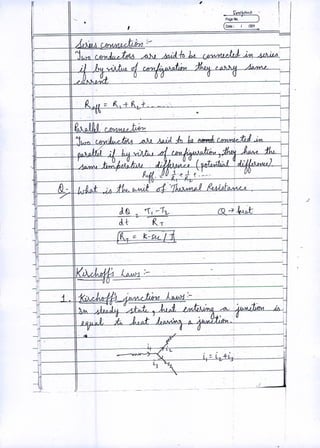 Page No.
Date : / /201
Series connection :-
Two conductors are said to be connected in series
if by virtue of configuration they carry same
current
Reff = R₁ + R₂ + ........
Parallel connection :-
Two conductors are said to be connected in
parallel if by virtue of configuration, they have the
same temperature difference (potential difference)
1/Reff = 1/R₁ + 1/R₂ + .....
Q- What is the unit of Thermal Resistance.
dQ/dt = (T₁-T₂)/R_T Q → heat
R_T = K-sec/J
Kirchoff's Laws :-
1. Kirchoff's junction Law :-
In steady state, heat entering a junction is
equal to heat leaving a junction.
i₁ i₂ i₃ i₁ = i₂+i₃